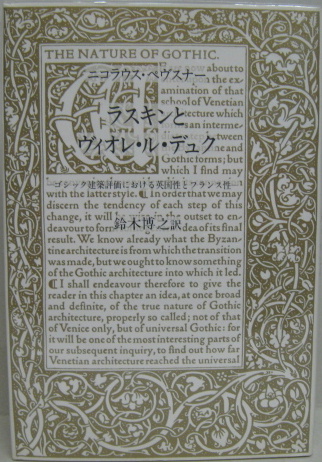 THE NATURE OF GOTHIC.
ニコラウス・ペヴスナー
now about to
the ex
amination of that
school of Venetian
ラスキンと
architecture which
an interme
ヴィオレ・ル・デュク
Gothic forms; but
which I find may
ゴシック建築評価における英国性とフランス性
with the latter style. ¶ In order that we may
discern the tendency of each step of this
change, it will outset to en
鈴木博之訳
deavour to form idea of its final
result. We know already what the Byzan-
tine architecture is from which the transition
was made, but we ought to know something
of the Gothic architecture into which it led.
¶ I shall endeavour therefore to give the
reader in this chapter an idea, at once broad
and definite, of the true nature of Gothic
architecture, properly so called; not of that
of Venice only, but of universal Gothic: for
it will be one of the most interesting parts of
our subsequent inquiry, to find out how far
Venetian architecture reached the universal